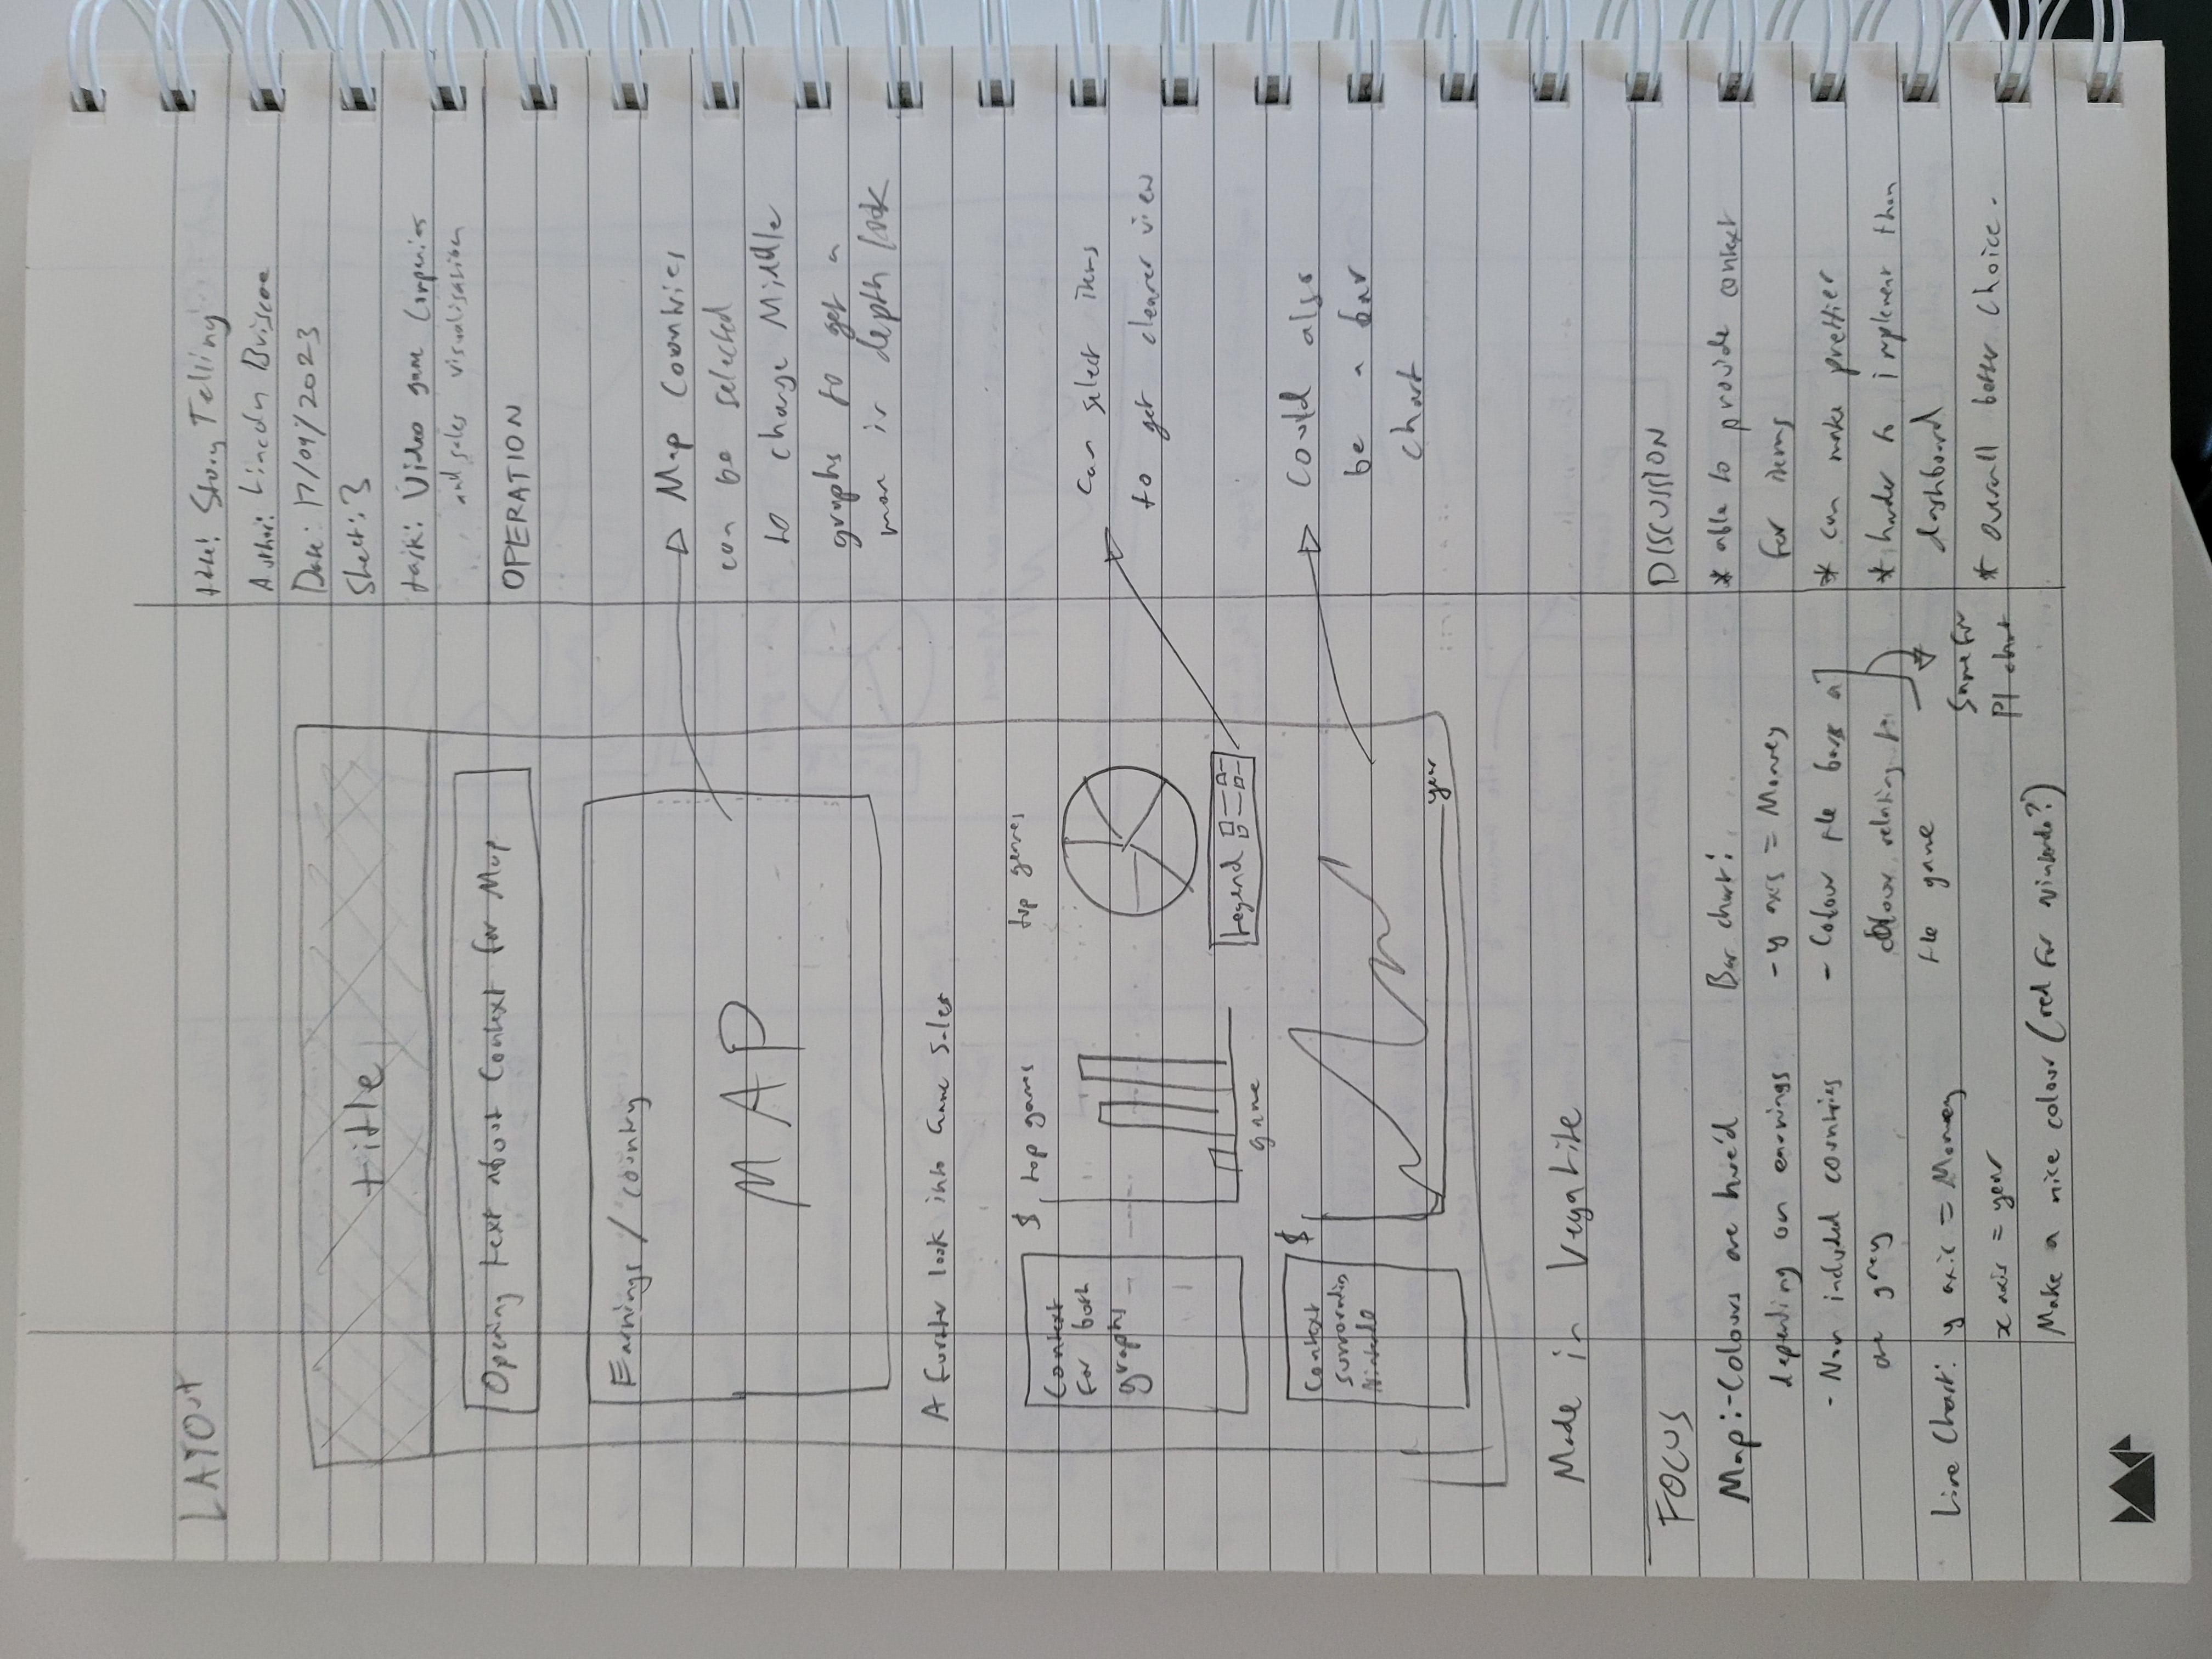 LAYOUT
title
Opening text about Context for Map
Earnings / country
MAP
A further look into Game Sales
Context
for both
graphs
$
top games
game
top genres
Legend
Context
surrounding
Nintendo
$
year
Made in VegaLite
title: Story Telling
Author: Lincoln Briscoe
Date: 17/09/2023
Sheet: 3
task: Video game Companies
and sales visualisation
OPERATION
Map Countries
can be selected
to change Middle
graphs to get a
more in depth look
Can select items
to get clearer view
Could also
be a bar
chart
FOCUS
Map: - Colours are hue'd
depending on earnings
- Non included countries
are grey
Line Chart: y axis = Money
x axis = year
Make a nice colour (red for Nintendo?)
Bar chart:
- y axis = Money
- Colour the bars a
colour relating to
the game
Same for
PI chart
DISCUSSION
* able to provide context
for items
* can make prettier
* harder to implement than
dashboard
* overall better choice.